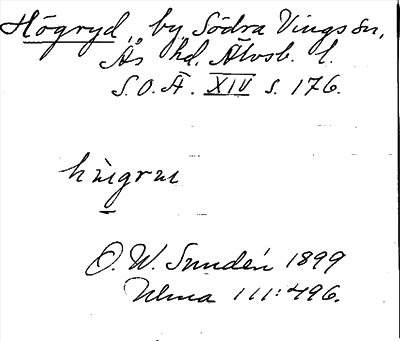 Högryd, by Södra Vings sn,
Ås hd. Älvsb. l.
S.O.Ä. XIV s. 176.
O. W. Sundén 1899
Ulma 111:496.